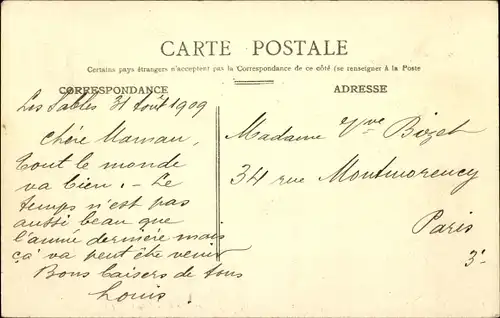 CARTE POSTALE
Certains pays étrangers n'acceptent pas la Correspondance de ce côté (se renseigner à la Poste
CORRESPONDANCE
ADRESSE
Les Sables 31 Août 1909
Chère Maman,
tout le monde
va bien. - Le
temps n'est pas
aussi beau que
l'année dernière mais
ça va peut être venir
Bons baisers de tous
Louis.
Madame Vve Bizet
34 rue Montmorency
Paris
3e